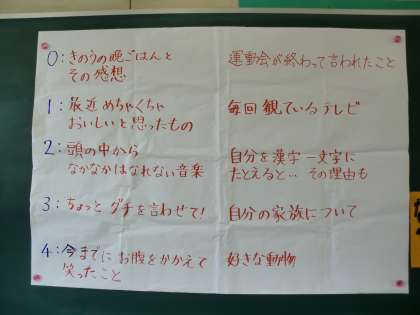 0：きのうの晩ごはんと
その感想
運動会が終わって言われたこと
1：最近 めちゃくちゃ
おいしいと思ったもの
毎回 観ているテレビ
2：頭の中から
なかなかはなれない音楽
自分を漢字一文字に
たとえると… その理由も
3：ちょっと グチを言わせて！
自分の家族について
4：今までに お腹をかかえて
笑ったこと
好きな動物